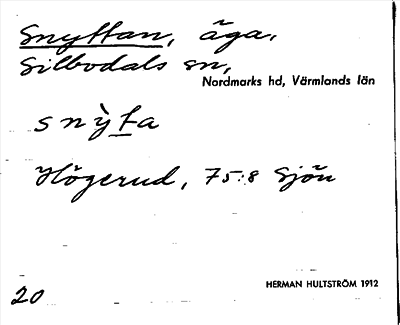 Snyttan, äga,
Silbodals sn,
Nordmarks hd, Värmlands län
snỳta
Högerud, 75:8 Sjön
20
HERMAN HULTSTRÖM 1912